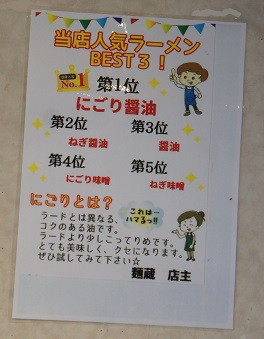 当店人気ラーメン
BEST3!
No.1
第1位
にごり醤油
第2位 第3位
ねぎ醤油 醤油
第4位 第5位
にごり味噌 ねぎ味噌
にごりとは?
これは…
ハマるっ!!
ラードとは異なる、
コクのある油です。
ラードより少しこってりめです。
とても美味しく、クセになります。
ぜひ試してみて下さい☆
麺蔵 店主